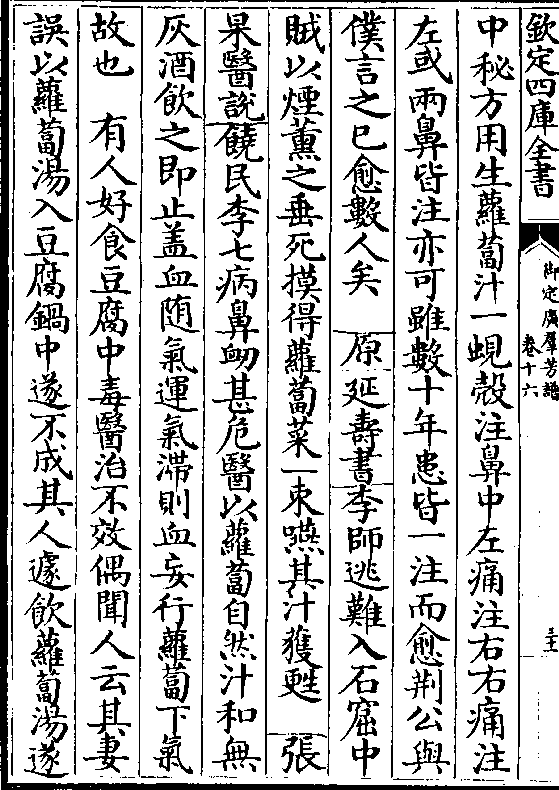 欽定四庫全書
御定廣羣芳譜
卷十六
中秘方用生蘿蔔汁一蜆殼注鼻中左痛注右右痛注
左或兩鼻皆注亦可雖數十年患皆一注而愈荆公與
僕言之已愈數人矣　原延壽書李師逃難入石窟中
賊以煙薰之垂死摸得蘿蔔菜一束嚥其汁獲甦　張
杲醫說饒民李七病鼻衂甚危醫以蘿蔔自然汁和無
灰酒飲之即止盖血随氣運氣滯則血妄行蘿蔔下氣
故也　有人好食豆腐中毒醫治不效偶聞人云其妻
誤以蘿蔔湯入豆腐鍋中遂不成其人遽飲蘿蔔湯遂